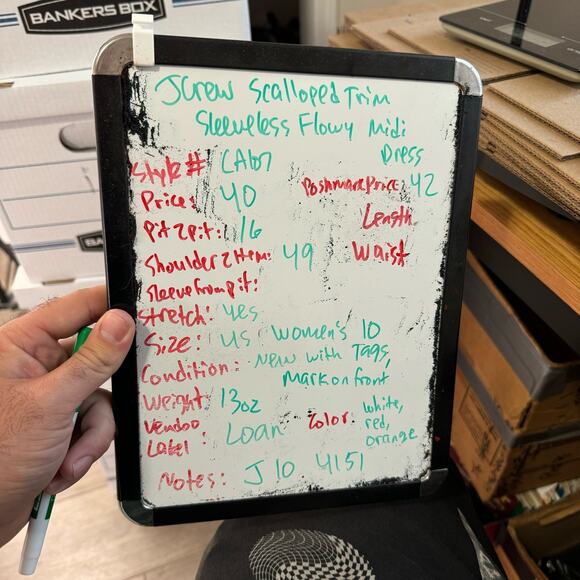 BANKERS BOX
JCrew Scalloped Trim
Sleeveless Flowy Midi
Dress
Style# CA167
Price: 40 PoshmarkPrice: 42
Pit2pit: 16 Length
Shoulder2Hem: 49 Waist
Sleevefrompit:
Stretch: yes
Size: US Women's 10
Condition: New with Tags,
Mark on front
Weight 13oz
Vendoo Label: Loan Color: white, red, orange
Notes: J10 4151